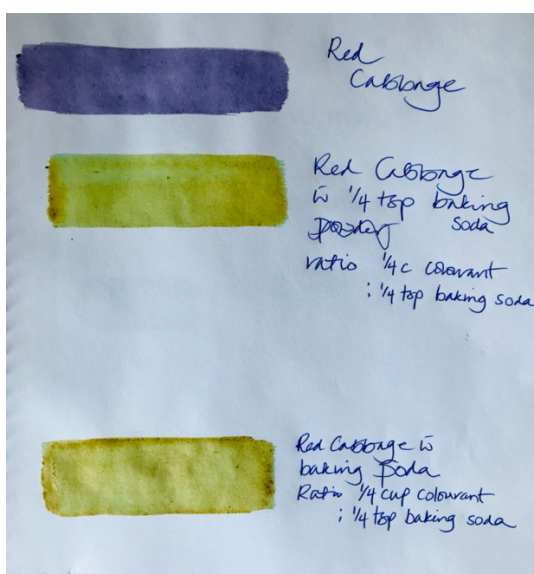 Red
Cabbage
Red Cabbage
w̄ 1/4 tsp baking
powder soda
ratio 1/4 c colourant
: 1/4 tsp baking soda
Red Cabbage w̄
baking Soda
Ratio 1/4 cup colourant
: 1/4 tsp baking soda